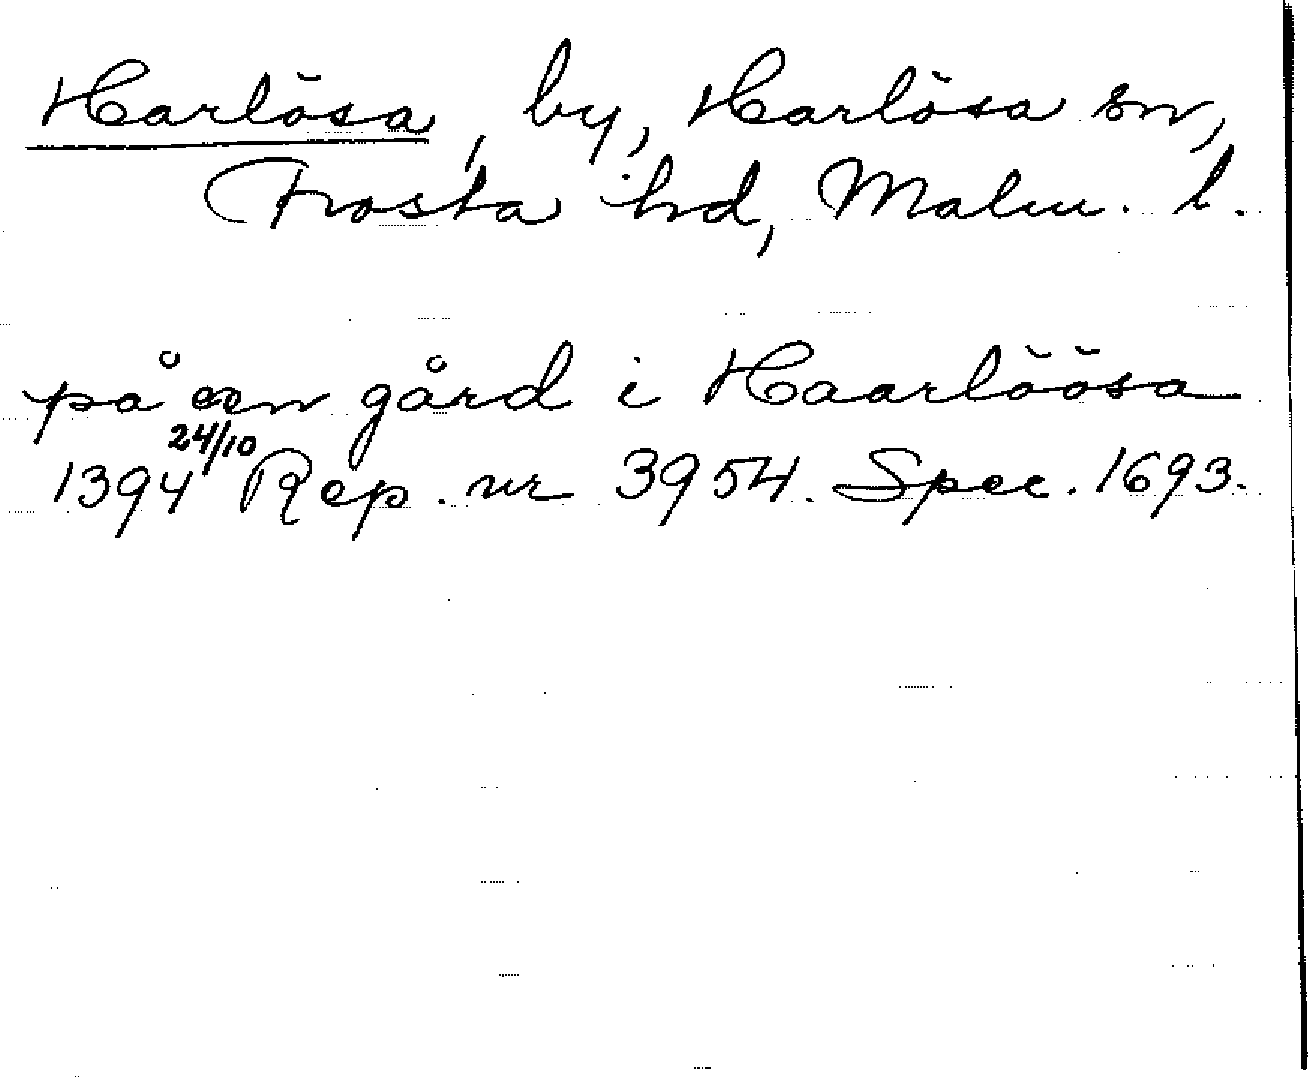 Harlösa, by, Harlösa sn,
Frosta hd, Malm. l.
på en gård i Haarlöösa
1394 24/10 Rep. nr 3954. Spec. 1693.